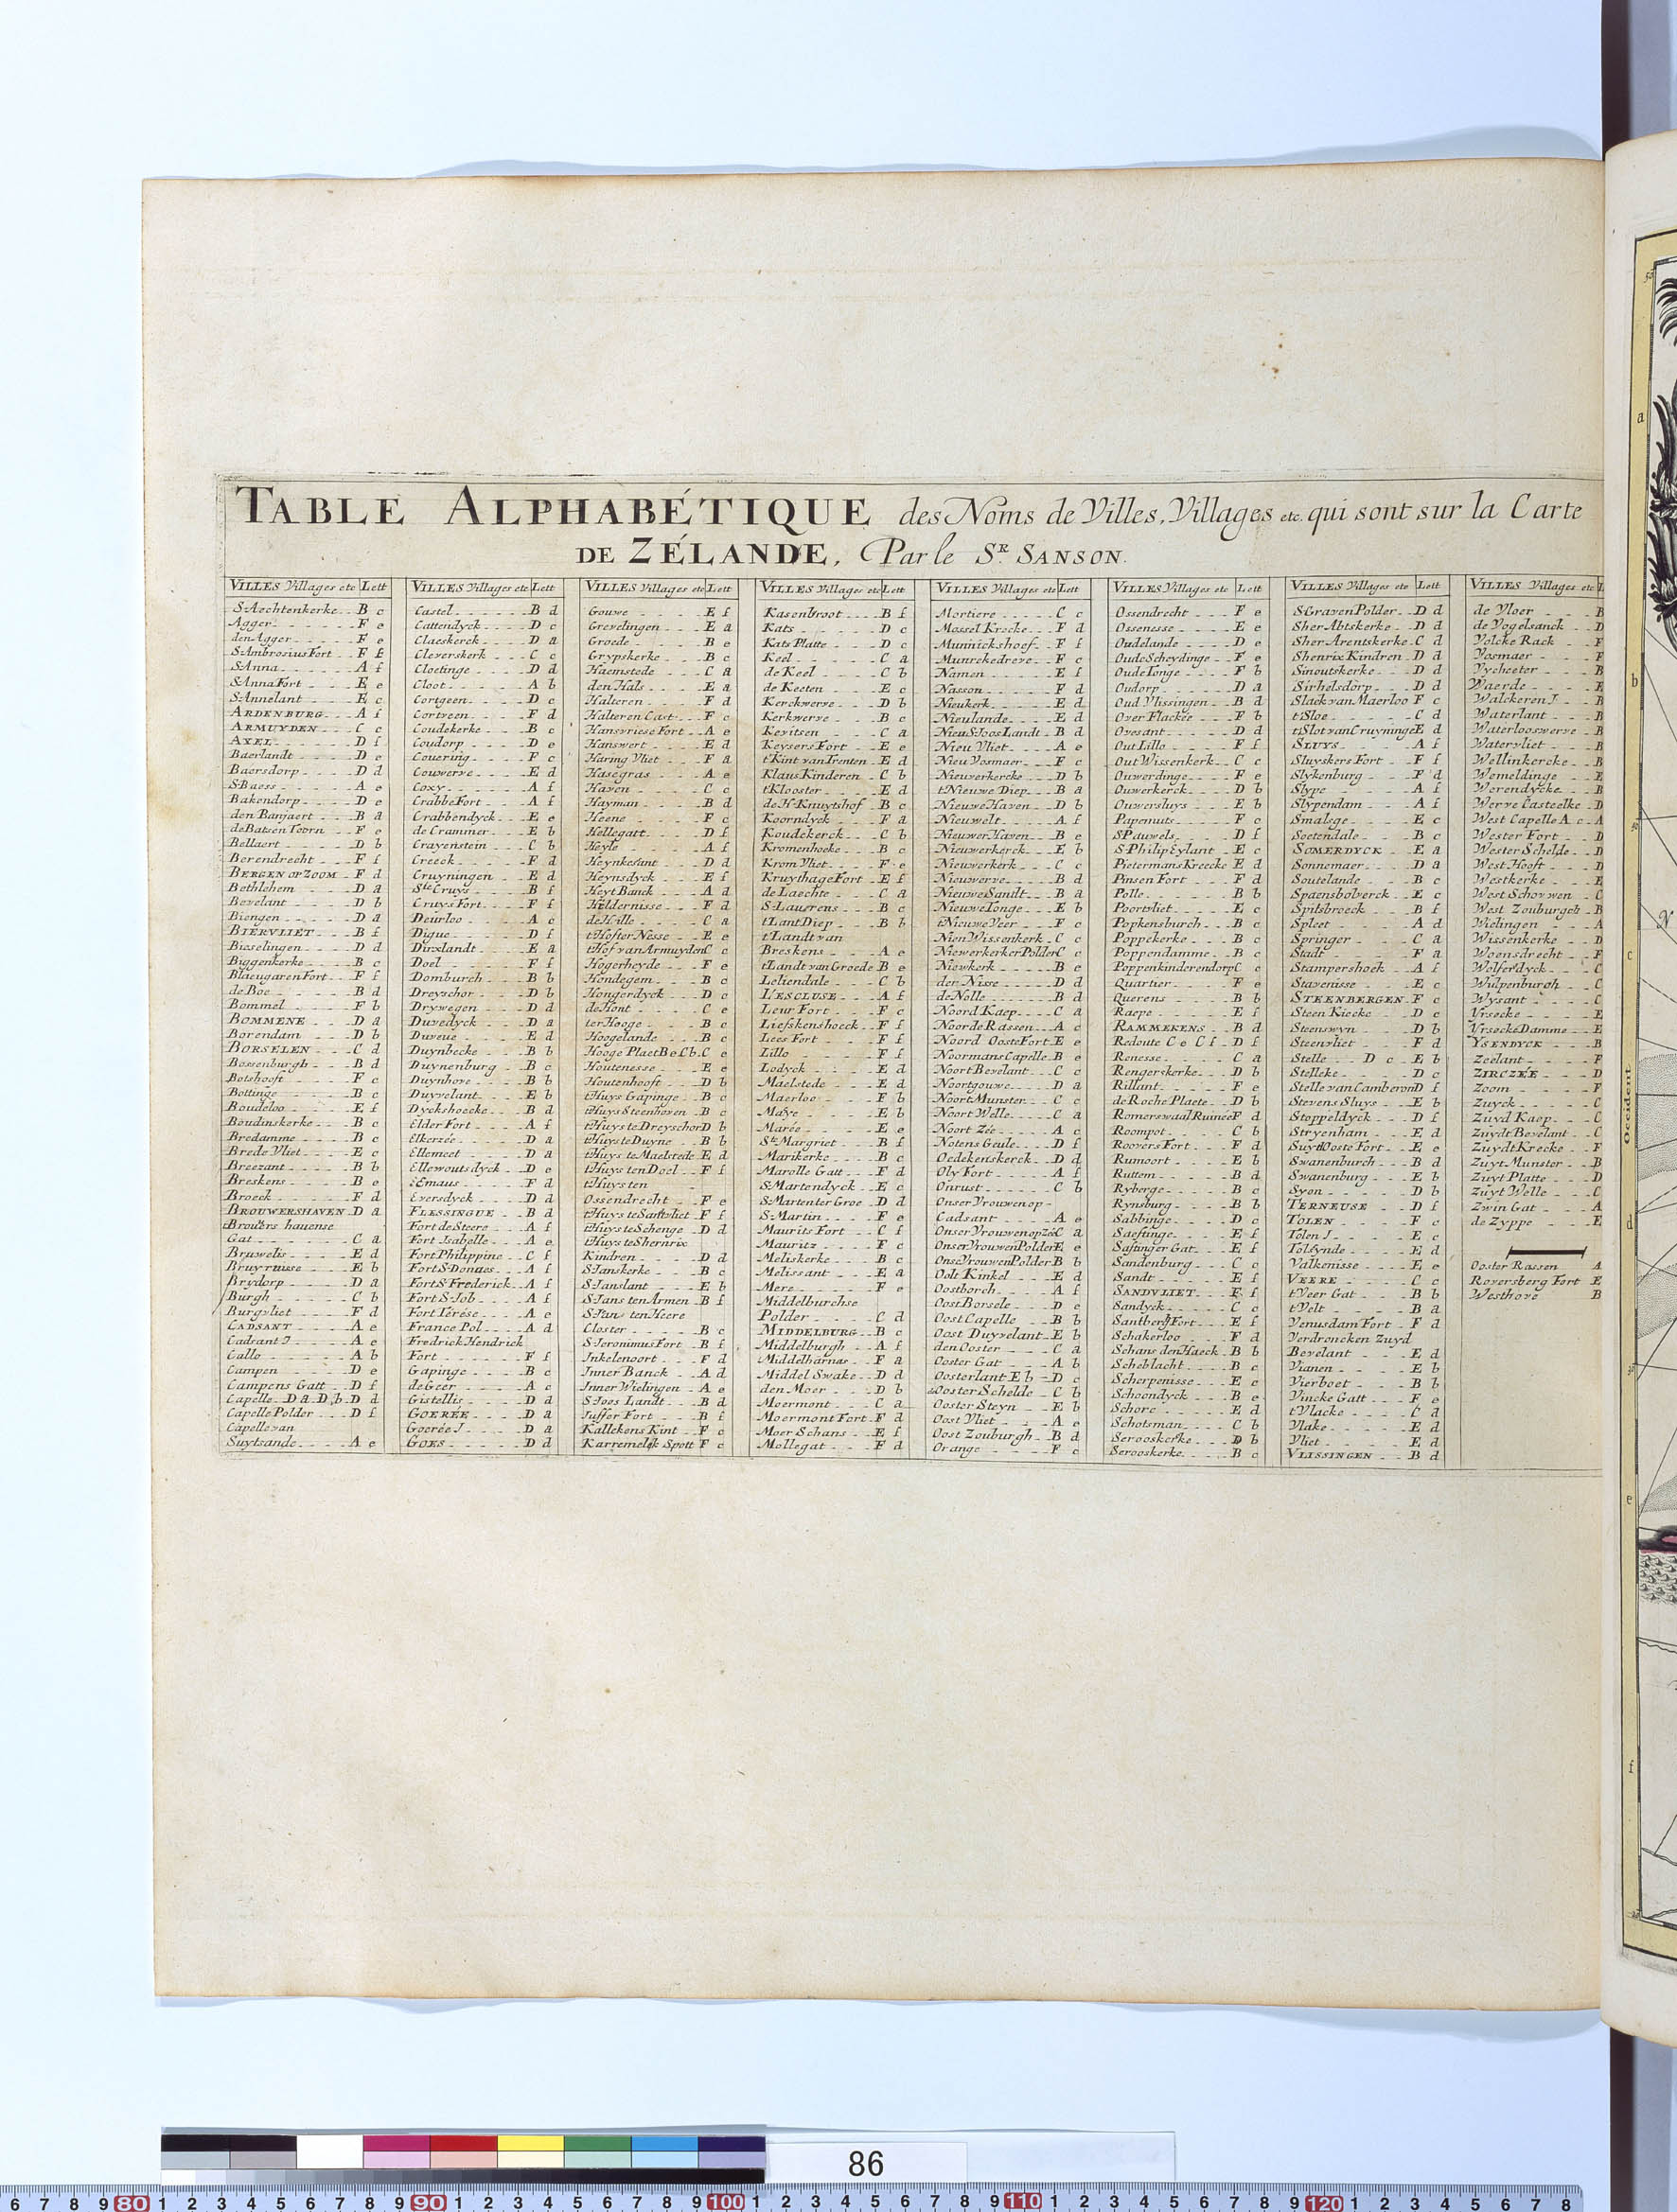 TABLE ALPHABÉTIQUE des Noms de Villes, Villages etc. qui sont sur la Carte
DE ZÉLANDE, Par le Sr. SANSON.
VILLES Villages etc Lett
S. Aechtenkerke B c
Agger F e
den Agger F e
S. Ambrosius Fort F f
S. Anna A f
S. Anna Fort E e
S. Annelant E c
ARDENBURG A f
ARMUYDEN C c
AXEL D f
Baerlandt D e
Baersdorp D d
S. Baess A e
Bakendorp D e
den Banjaert B a
de Batsen Toorn F e
Bellaert D b
Berendrecht F f
BERGEN OP ZOOM F d
Bethlehem D a
Bevelant D b
Biengen D a
BIERVLIET B f
Bieselingen D d
Biggenkerke B c
Blaeugaren Fort F f
de Boe B d
Bommel F b
BOMMENE D a
Borendam D b
BORSELEN C d
Bossenburgh B d
Botshooft F c
Bottinge B c
Boudeloo E f
Boudinskerke B c
Bredamme B c
Brede Vliet E c
Breezant B b
Breskens B e
Broeck F d
BROUWERSHAVEN D a
t Brouwers hauense
Gat C a
Bruwelis E d
Bruyrusse E b
Brydorp D a
Burgh C b
Burgvliet F d
CADSANT A e
Cadsant I A e
Callo A b
Campen D e
Campens Gatt D f
Capelle D a D b D d
Capelle Polder D f
Capelle van
Suytsande A e
VILLES Villages etc Lett
Castel B d
Cattendyck D c
Claeskerck D a
Cleverskerk C c
Cloetinge D d
Cloot A b
Cortgeen D c
Cortveen F d
Coudekerke B c
Coudorp D e
Couering F c
Couwerve E d
Coxy A f
Crabbe Fort A f
Crabbendyck E e
de Crammer E b
Crayenstein C b
Creeck F d
Cruyningen E d
Ste Cruys B f
Cruys Fort F f
Deurloo A c
Digue D f
Dirxlandt E a
Doel F f
Domburch B b
Dreyschor D b
Drywegen D d
Duvedyck D a
Duveue E d
Duynbecke B b
Duynenburg B c
Duynhove B b
Duyvelant E b
Dyckshoecke B d
Elder Fort A f
Elkerzée D a
Ellemeet D a
Ellewoutsdyck D e
Emaus F d
Eversdyck D d
FLESSINGUE B d
Fort de Steere A f
Fort Isabelle A e
Fort Philippine C f
Fort S. Donaes A f
Fort S. Frederick A f
Fort S. Job A f
Fort Térése A e
France Pol A d
Fredrick Hendrick
Fort F f
Gapinge B c
de Geer A c
Gistellis D d
GOERÉE D a
Goerée I D a
GOES D d
VILLES Villages etc Lett
Gouwe E f
Grevelingen E a
Groede B e
Grypskerke B c
Haemstede C a
den Hals E a
Halteren F d
Halteren Cast F c
Hansvriese Fort A e
Hanswert E d
Haring Vliet F a
Hasegras A e
Haven C c
Hayman B d
Heene F c
Hellegatt D f
Heyle A f
Heynkesant D d
Heynsdyck E f
Heyt Banck A d
Heldernisse F d
de Hille C a
t Hofter Nesse E e
t Hof van Armuyden C c
Hogerheyde F e
Hondegem B c
Hongerdyck D c
de Hont C e
ter Hooge B c
Hoogelande B c
Hooge Plaet B e C b C e
Houtenesse E e
Houtenhooft D b
t Huys Gapinge B c
t Huys Steenhoven B c
t Huys te Dreyschor D b
t Huys te Duyne B b
t Huys te Maelstede E d
t Huys ten Doel F f
t Huys ten
Ossendrecht F e
t Huys te Santvliet F f
t Huys te Schenge D d
t Huys te Shernrix
Kindren D d
S. Janskerke B c
S. Janslant E b
S. Jans ten Armen B f
S. Jans ten Heere
Closter B c
S. Jeronimus Fort B f
Inkelenoort F d
Inner Banck A d
Inner Wielingen A e
S. Joos Landt B d
Juffer Fort B f
Kallekens Kint F c
Karremelck Spott F c
VILLES Villages etc Lett
Kasenbroot B f
Kats D c
Kats Platte D c
Keel C a
de Keel C b
de Keeten E c
Kerckwerve D b
Kerkwerve B c
Kevitsen C a
Keysers Fort E e
t Kint van Trenten E d
Klaus Kinderen C b
t Klooster E d
de H. Knuytshof B c
Koorndyck F a
Koudckerck C b
Kromenhoeke B c
Krom Vliet F e
Kruythage Fort E f
de Laechte C a
S. Laurens B c
t Lant Diep B b
t Landt van
Breskens A e
t Landt van Groede B e
Leliendale C b
L'ESCLUSE A f
Leur Fort F c
Liefskenshoeck F f
Lees Fort F f
Lillo F f
Lodyck E d
Maelstede E d
Maerloo F b
Maye E b
Marée E e
Ste Margriet B f
Marikerke B c
Marolle Gatt F d
S. Martendyck E c
S. Marten ter Groe D d
S. Martin F e
Maurits Fort C f
Mauritz F c
Meliskerke B c
Melissant E a
Mere F e
Middelburchse
Polder C d
MIDDELBURG B c
Middelburgh A f
Middelharnas F a
Middel Swake D d
den Moer D b
Moermont C a
Moermont Fort F d
Moer Schans E f
Mollegat F d
VILLES Villages etc Lett
Mortiere C c
Mossel Krecke F d
Munnickshoef F f
Munrekedreve F c
Namen E f
Nasson F d
Nieukerk E d
Nieulande E d
Nieu S. Joos Landt B d
Nieu Vliet A e
Nieu Vosmaer F c
Nieuwerkercke D b
t Nieuwe Diep B a
Nieuwe Haven D b
Nieuwelt A f
Nieuwer Haven B e
Nieuwerkerck E b
Nieuwerkerk C c
Nieuwerve B d
Nieuwe Sandt B a
Nieuwe Tonge E b
t Nieuwe Veer F c
Nien Wissenkerk C c
Niewerkerker Polder C c
Niewkerk B e
der Nisse D d
de Nolle B d
Noord Kaep C a
Noorde Rassen A c
Noord Ooste Fort E e
Noormans Capelle B e
Noort Bevelant C c
Noortgouwe D a
Noort Munster C c
Noort Welle C a
Noort Zée A c
Notens Geule D f
Oedekenskerck D d
Oly Fort A f
Onrust C b
Onser Vrouwen op
Cadsant A e
Onser Vrouwen op zée C a
Onser Vrouwen Polder E e
Onse Vrouwen Polder B b
Oole Kinkel E d
Oostborch A f
Oost Borsele D e
Oost Capelle B b
Oost Duyvelant E b
den Ooster C a
Ooster Gat A b
Oosterlant E b D c
de Ooster Schelde C b
Ooster Steyn E b
Oost Vliet A e
Oost Zouburgh B d
Orange F c
VILLES Villages etc Lett
Ossendrecht F e
Ossenesse E e
Oudelande D e
Oude Scheydinge F e
Oude Tonge F b
Oudorp D a
Oud Vlissingen B d
Over Flackée F b
Ovesant D d
Out Lillo F f
Out Wissenkerk C c
Ouwerdinge F e
Ouwerkerck D b
Ouwersluys E b
Papemuts F c
S. Pauwels D f
S. Philip Eylant E c
Pietermans Kreecke E d
Pinsen Fort F d
Polle B b
Poortvliet E c
Popkensburch B c
Poppekerke B c
Poppendamme B c
Poppenkinderendorp C c
Quartier F e
Querens B b
Raepe E f
RAMMEKENS B d
Redoute C e C f D f
Renesse C a
Rengerskerke D b
Rillant F e
de Roche Plaete D b
Romerswaal Ruinée F d
Roompot C b
Roovers Fort F d
Rumoort E b
Ruttem B d
Ryberge B c
Rynsburg B b
Sabbinge D c
Saeftinge E f
Saftinger Gat E f
Sandenburg C c
Sandt E f
SANDVLIET F f
Sandyck C c
Santberg Fort E f
Schakerloo F d
Schans den Haeck B b
Scheblacht B c
Scherpenisse E c
Schoondyck B e
Schore E d
Schotsman C b
Serooskerke D b
Serooskerke B c
VILLES Villages etc Lett
S. Graven Polder D d
Sher Abtskerke D d
Sher Arentskerke C d
Shenrix Kindren D d
Sinoutskerke D d
Sirhelsdorp D d
Slack van Maerloo F c
t Sloe C d
t Slot van Cruyninge E d
SLUYS A f
Sluyskers Fort F f
Slykenburg F d
Slype A f
Slypendam A f
Smalege E c
Soetendale B c
SOMERDYCK E a
Sonnemaer D a
Soutelande B c
Spaensbolverck E c
Spitsbroeck B f
Spleet A d
Springer C a
Stadt F a
Stampershoek A f
Stavenisse E c
STEENBERGEN F c
Steen Kiecke D c
Steenswyn D b
Steenvliet F d
Stelle D c E b
Stelleke D c
Stelle van Camberon D f
Stevens Sluys E b
Stoppeldyck D f
Stryenham E d
Suyt Ooste Fort E e
Swanenburch B d
Swanenburg E b
Syon D b
TERNEUSE D f
TOLEN F c
Tolen I E c
Tolsynde E d
Valkenisse E e
VEERE C c
t Veer Gat B b
t Velt B a
Venusdam Fort F d
Verdroncken Zuyd
Bevelant E d
Vianen E b
Vierboet B b
Vincke Gatt F e
t Vlacke C d
Vlake E d
Vliet E d
VLISSINGEN B d
VILLES Villages etc
de Vloer B
de Vogelsanck D
Volcke Rack F
Vosmaer F
Vycheeter B
Waerde E
Walckeren I B
Waterlant B
Waterlooswerve B
Watervliet B
Wellinkercke B
Wemeldinge E
Werendycke B
Werve Casteelke D
West Capelle A c A
Wester Fort D
Wester Schelde D
West Hooft D
Westkerke E
West Schovwen C
West Zouburgch B
Wielingen A
Wissenkerke D
Woensdrecht F
Wolferdyck C
Wulpenburgh C
Wysant C
Yrsecke E
Yrsecke Damme E
YSENDYCK B
Zeelant F
ZIRCZÉE D
Zoom F
Zuyck C
Zuyd Kaep C
Zuydt Bevelant C
Zuydt Krecke F
Zuyt Munster B
Zuyt Platte D
Zuyt Welle C
Zwin Gat A
de Zyppe E
Ooster Rassen A
Roversberg Fort E
Westhove B
a
b
N
c
Occident
d
e
f
86
6 7 8 9 80 1 2 3 4 5 6 7 8 9 90 1 2 3 4 5 6 7 8 9 100 1 2 3 4 5 6 7 8 9 110 1 2 3 4 5 6 7 8 9 120 1 2 3 4 5 6 7 8